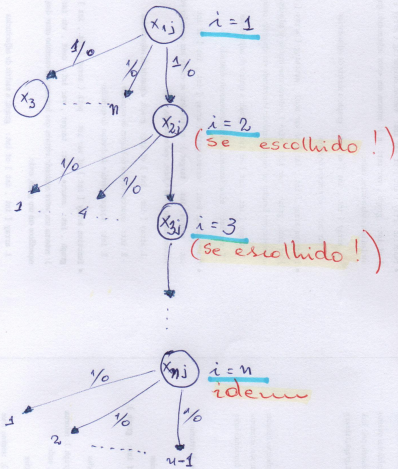 x1j i = 1
1/0 1/0 1/0
x3 ...... n
x2j i = 2
(se escolhido!)
1/0 1/0
1 ... 4 ....
x3j i = 3
(se escolhido!)
xnj i = n
idem
1/0 1/0 1/0
1
2 ........ n-1